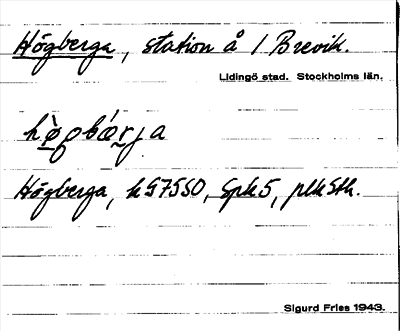 Högberga, station å / Brevik.
Lidingö stad. Stockholms län.
hø̀gbárja
Högberga, k G7550, Spk5, plk Sth.
Sigurd Fries 1943.